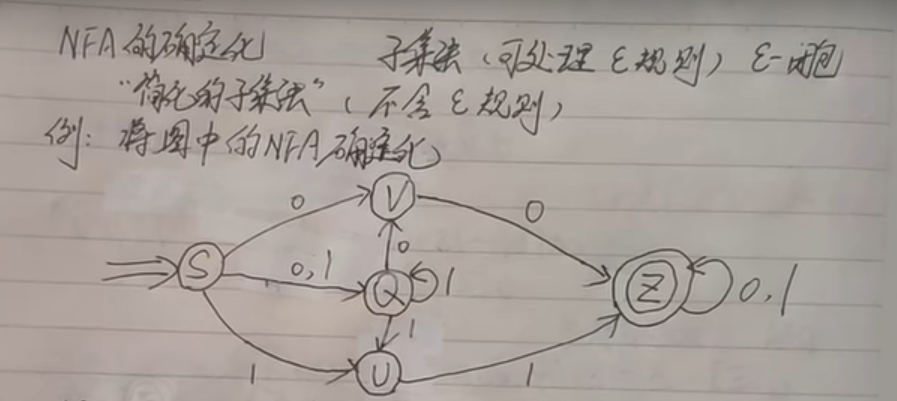 NFA的确定化 子集法(可处理 ε规则) ε-闭包
"简化的子集法"(不含 ε规则)
例:将图中的NFA确定化
V
0 0
S 0,1 0
Q 1 Z 0,1
1
1 U 1